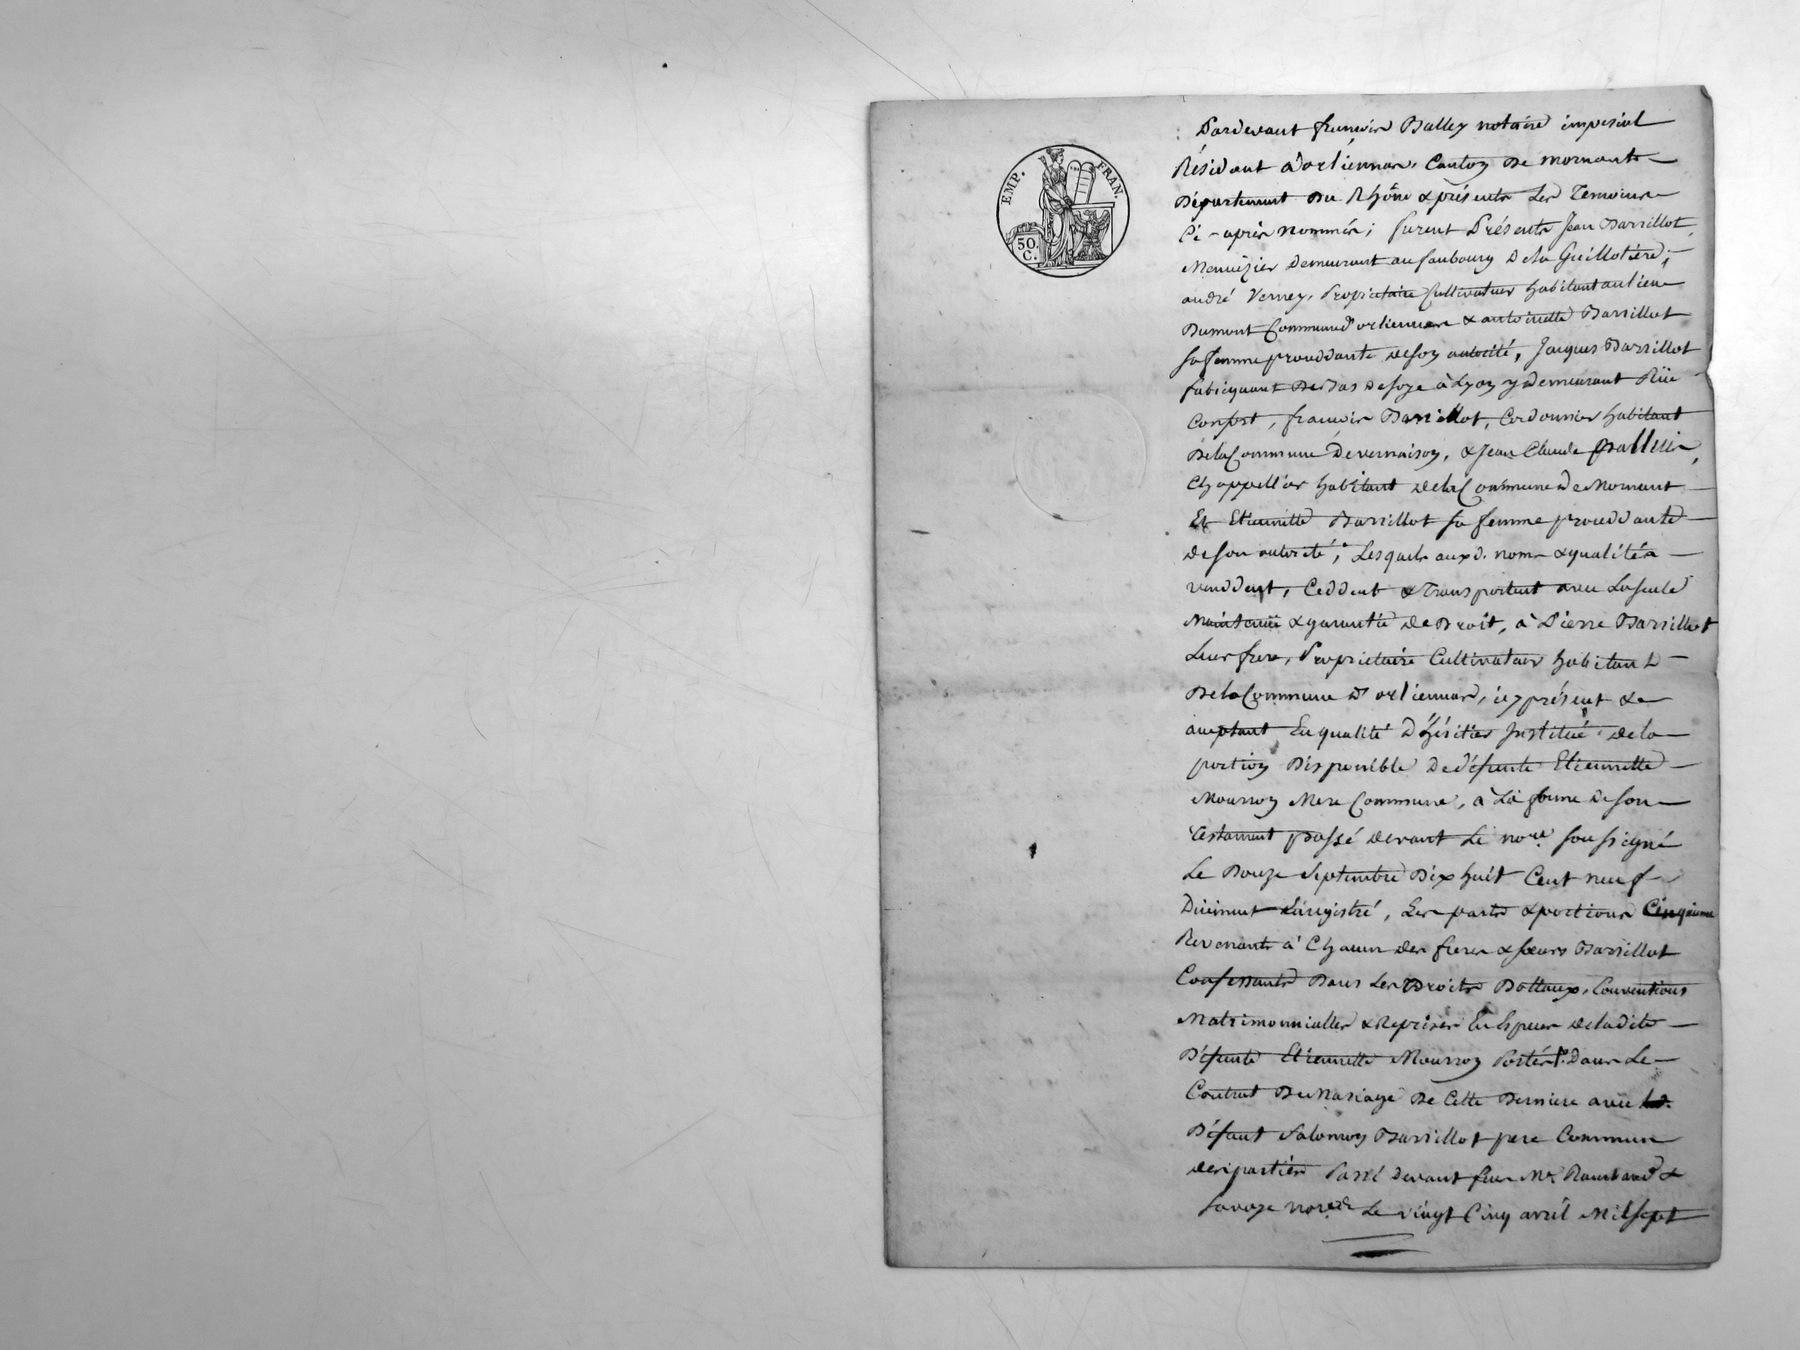 EMP. FRAN.
50.
C.
Pardevant françois Balley notaire impérial
Résidant à orliennas, Canton De mornant
Département Du Rhône & présents Les Temoins
Ci-après nommés; furent Présents Jean Barrillot
Menuizier Demeurant au faubourg De la Guillotière;
andré Verney, Propriétaire Cultivateur habitant au lieu
Dumont Commune d'orliennas & antoinette Barrillot
sa femme proceddante de soy autorité, Jacques Barrillot
fabriquant De Bas De soye à Lyon y demeurant Rüe
Confort, françois Barrillot, Cordonnier habitant
De la Commune De vernaison, & Jean Claude
Chappellier habitant de la Commune de Mornant
Et Etiennette Barrillot sa femme proceddante
de son autorité; Lesquels aux d. noms & qualités
venddent, Ceddent & Transportent avec La seule
Maintenüe & garantie de Droit, à Pierre Barrillot
Leur frere, Propriétaire Cultivateur habitant
De la Commune d'orliennas, icy présent &
acceptant En qualité D'héritier Institué de la
portion Disponible De défunte Etiennette
Mourron Mere Commune, à La forme de son
Testament passé devant Le nore. soussigné
Le Douze Septembre Dix huit Cent neuf
Düement Enregistré, Les parts & portions Cinquieme
Revenants à Chacun des freres & soeurs Barrillot
Dans Les Droits Dottaux, Conventions
Matrimonialles & Reprises En Espèces de ladite
Défunte Etiennette Mourron Portés Dans Le
Contrat De Mariage De Cette Derniere avec
Défunt Salomon Barrillot pere Commun
des parties Passé devant feu Me. &
nores Le vingt Cinq avril Mil sept